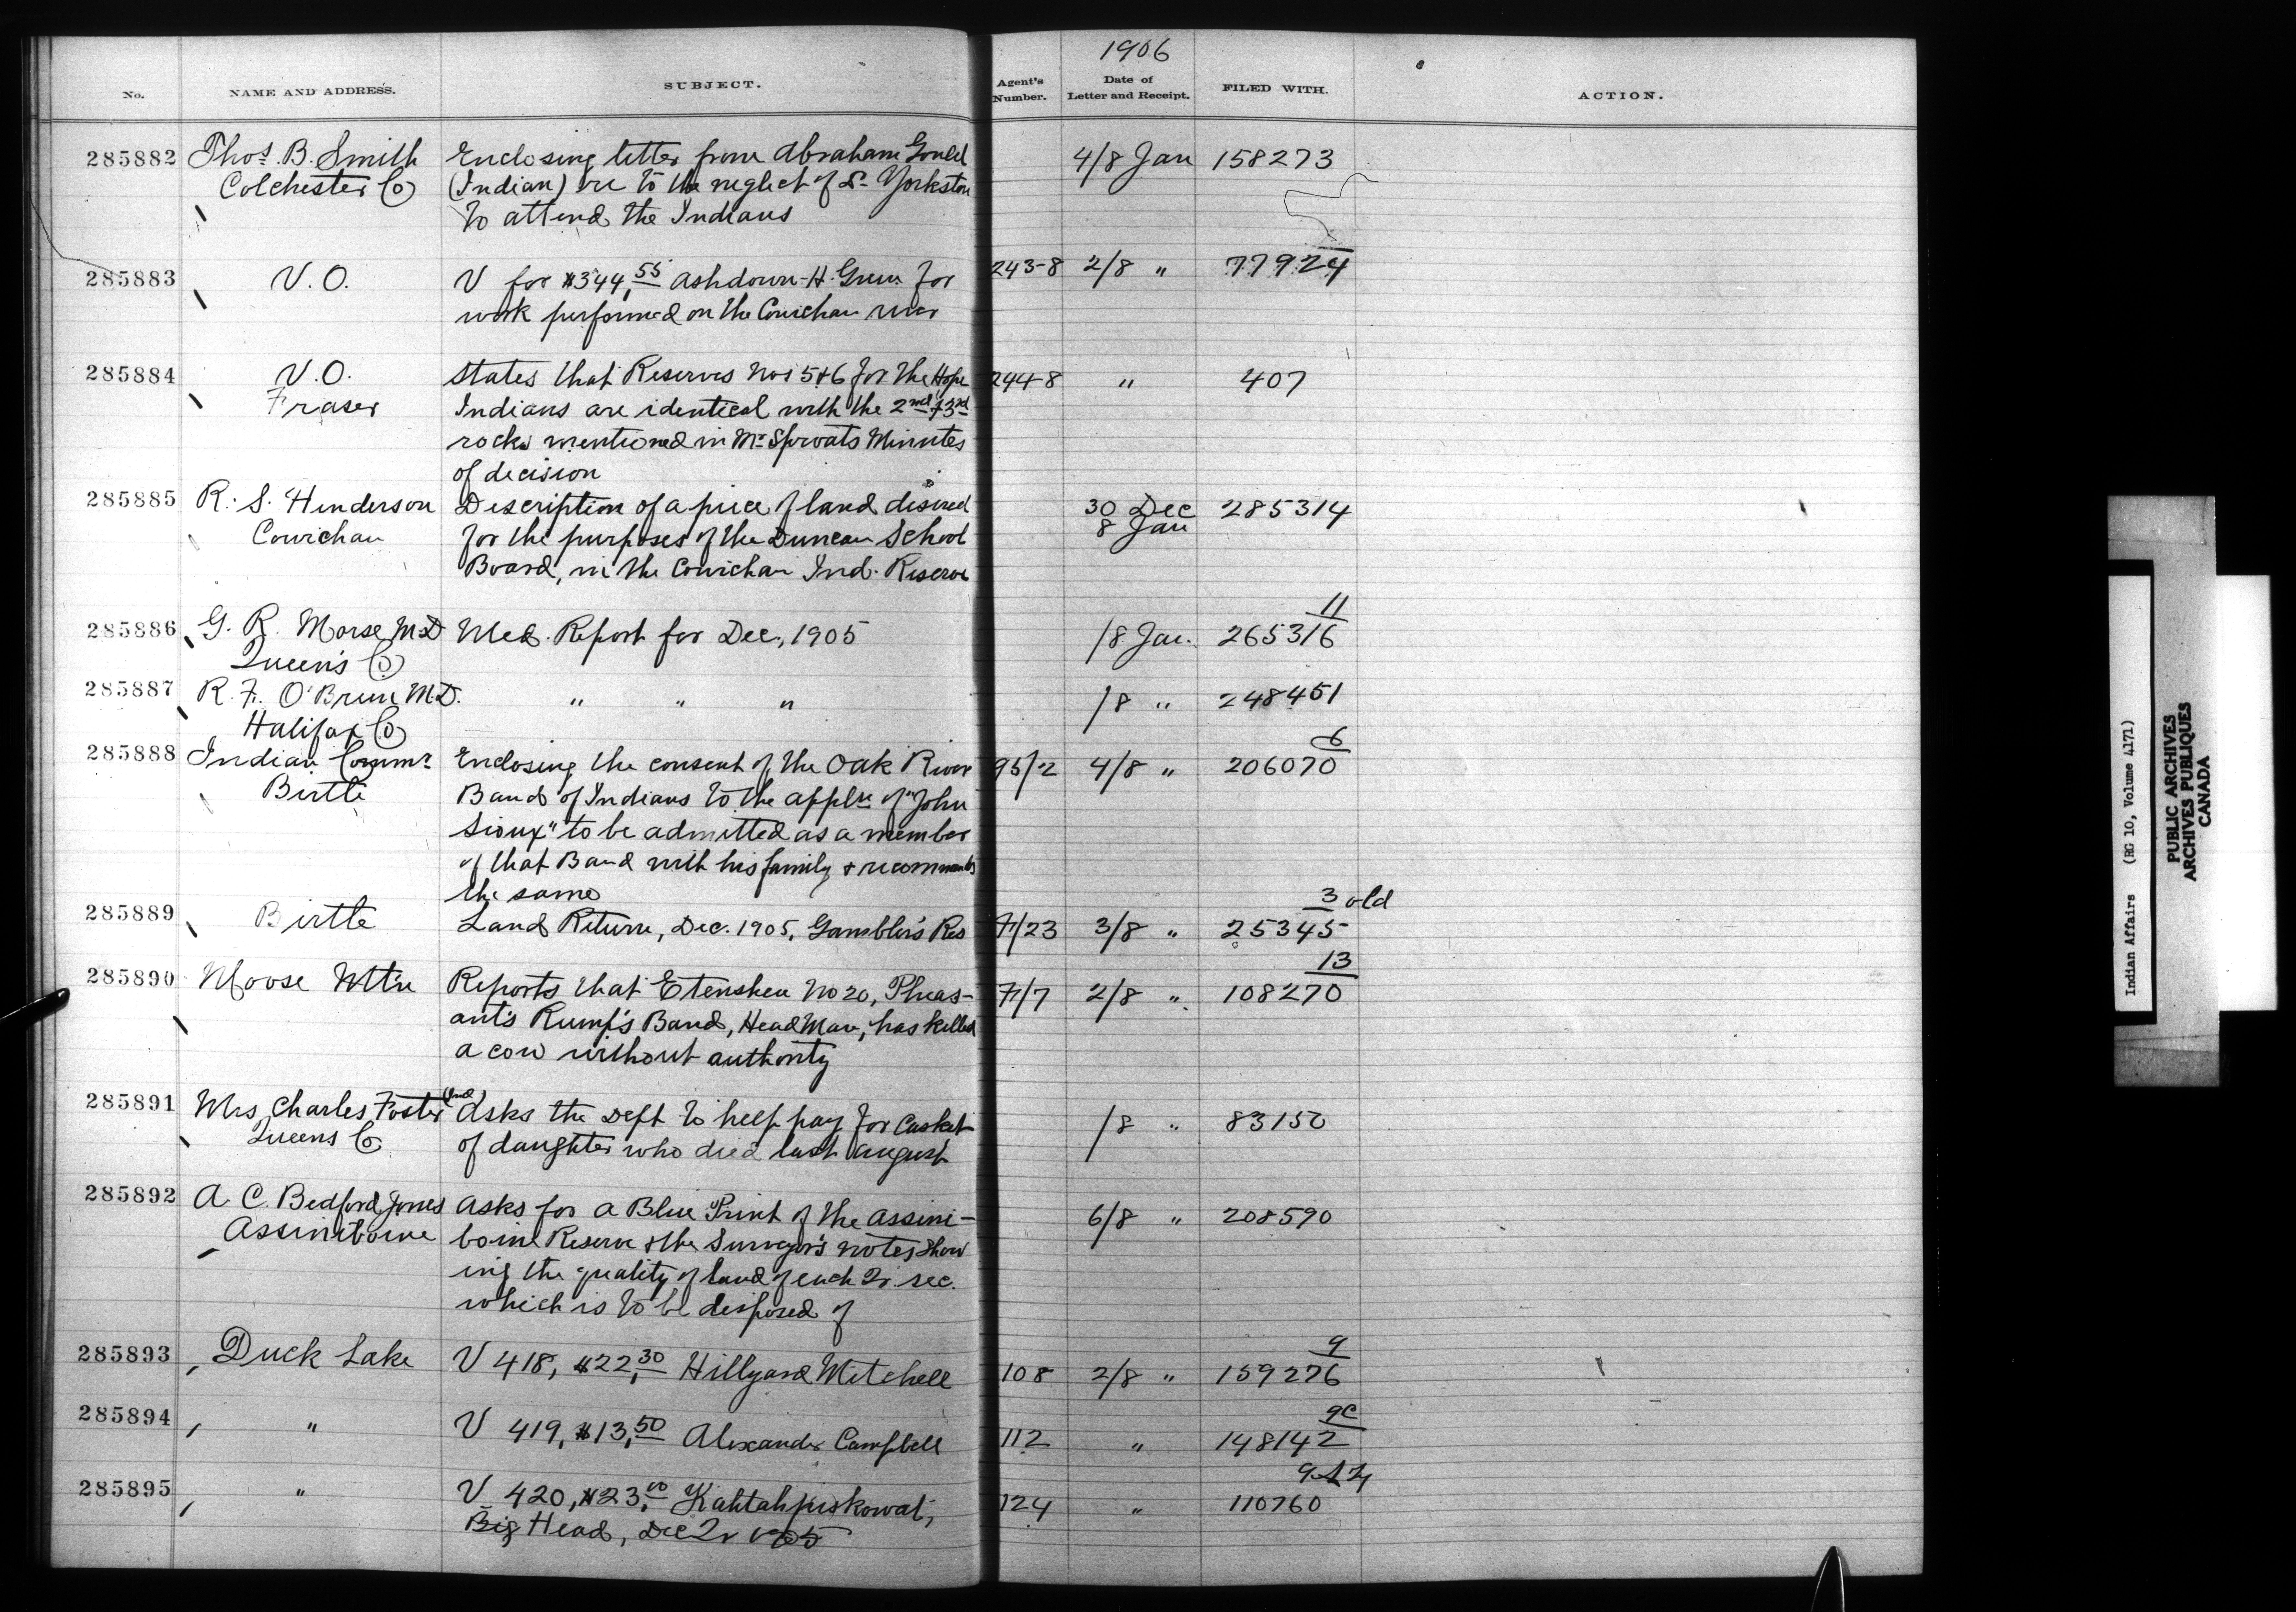 1906
No. NAME AND ADDRESS. SUBJECT. Agent's Number. Date of Letter and Receipt. FILED WITH. ACTION.
285882 Thos. B. Smith Enclosing letter from Abraham Gould 4/8 Jan 158273
Colchester Co (Indian) re to the neglect of Dr. Yorkston
to attend the Indians
285883 V.O. V for $344.55 Ashdown H. Green for 243-8 2/8 " 77924
work performed on the Cowichan river
285884 V.O. States that Reserves Nos 5+6 for the Hope 244-8 " 407
Fraser Indians are identical with the 2nd + 3rd
rocks mentioned in Mr Sproats Minutes
of decision
285885 R. S. Henderson Description of a piece of land desired 30 Dec 285314
Cowichan for the purposes of the Duncan School 8 Jan
Board, in the Cowichan Ind. Reserve
11
285886 G. R. Morse M.D Med. Report for Dec., 1905 /8 Jan. 265316
Queen's Co
285887 R. F. O'Brien M.D. " " " /8 " 248451
Halifax Co
6
285888 Indian Commr Enclosing the consent of the Oak River 95/2 4/8 " 206070
Birtle Band of Indians to the appln of "John
Sioux" to be admitted as a member
of that Band with his family + recommends
the same
3 old
285889 Birtle Land Return, Dec. 1905, Gambler's Res 7/23 3/8 " 25345
13
285890 Moose Mtn Reports that Etenshen No 20, Pheas- 7/7 2/8 " 108270
ant's Rump's Band, Head Man, has killed
a cow without authority
285891 Mrs Charles Foster (Ind) Asks the Dept to help pay for Casket /8 " 83150
Queens Co of daughter who died last August
285892 A. C. Bedford Jones Asks for a Blue Print of the Assini- 6/8 " 208590
Assiniboine boine Reserve + the Surveyor's notes show
ing the quality of land of each Qr sec.
which is to be disposed of
9
285893 Duck Lake V 418, $22.30 Hillyard Mitchell 108 2/8 " 159276
9C
285894 " V 419, $13.50 Alexander Campbell 112 " 148142
285895 " V 420, $23.00 Kahtahpiskowat, 124 " 110760
Big Head, Dec Qr 1905
Indian Affairs (RG 10, Volume 4171)
PUBLIC ARCHIVES
ARCHIVES PUBLIQUES
CANADA